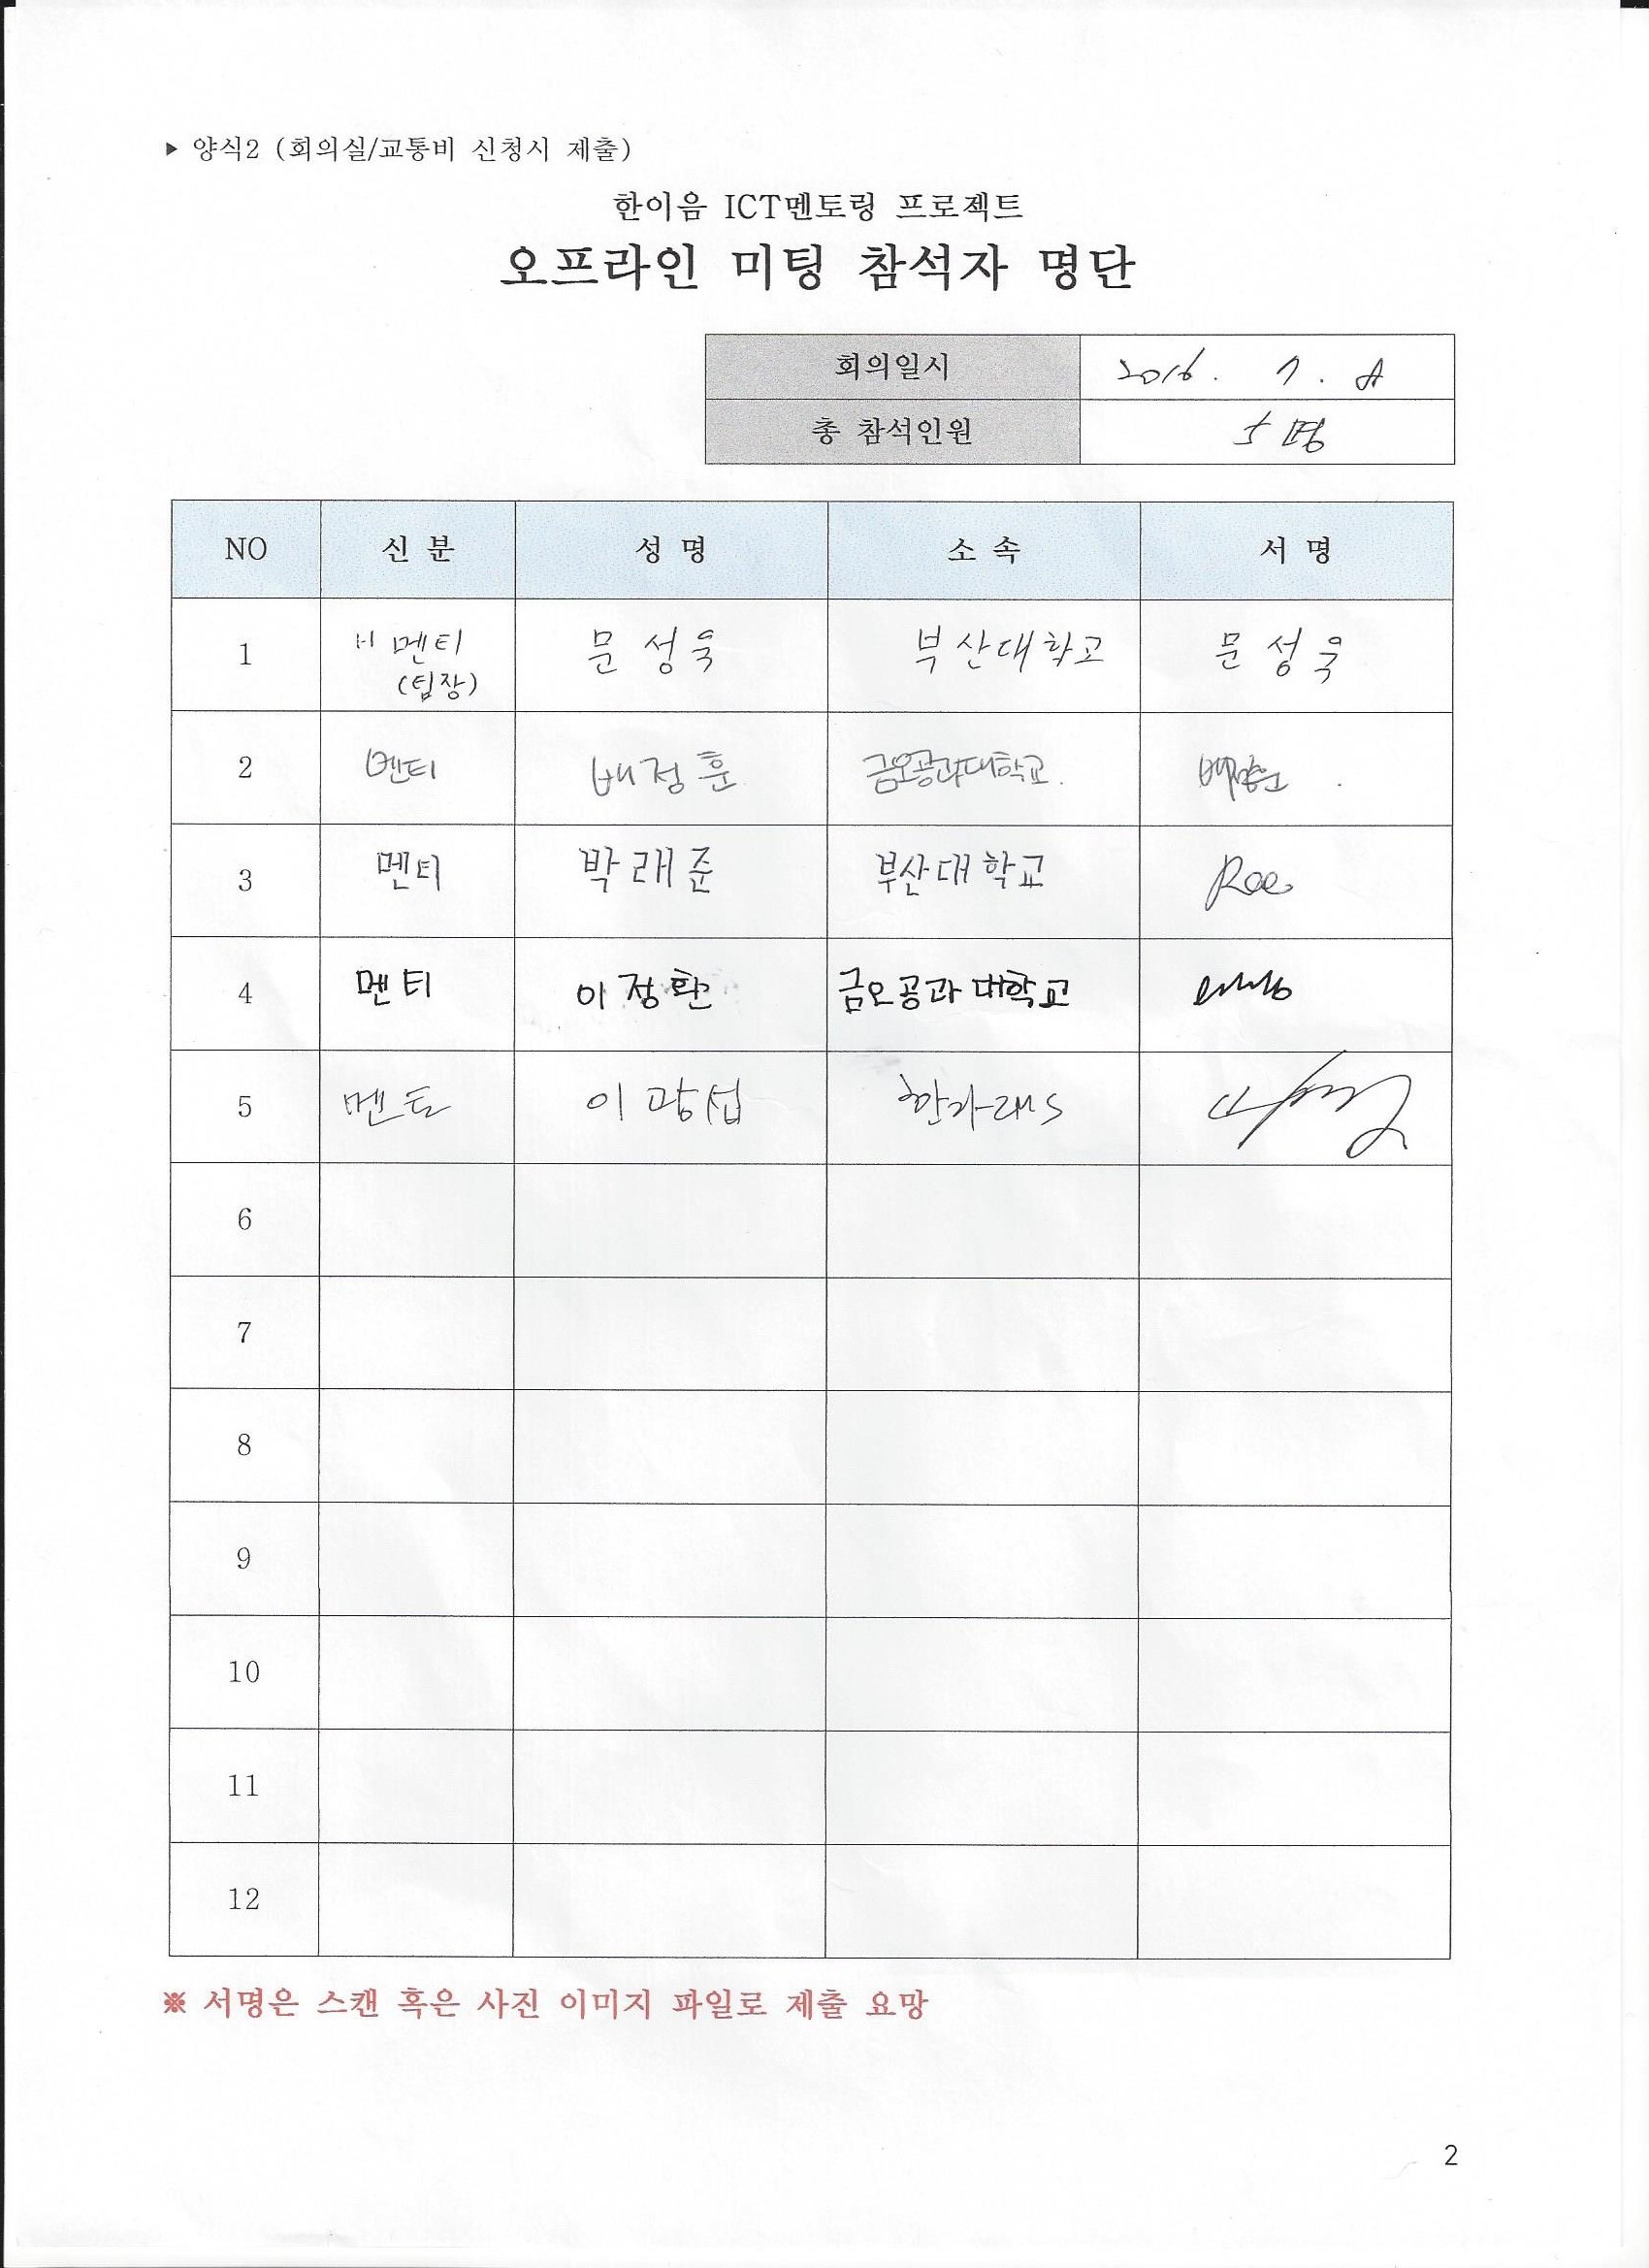 ▶ 양식2 (회의실/교통비 신청시 제출)
한이음 ICT멘토링 프로젝트
오프라인 미팅 참석자 명단
회의일시 2016. 7.
총 참석인원 5명
NO 신 분 성 명 소 속 서 명
1 멘티 문성욱 부산대학교 문성욱
(팀장)
2 멘티 배정훈 금오공과대학교. 배정훈
3 멘티 박래준 부산대학교 Rae
4 멘티 이정환 금오공과대학교
5 멘토 이광섭
6
7
8
9
10
11
12
※ 서명은 스캔 혹은 사진 이미지 파일로 제출 요망
2